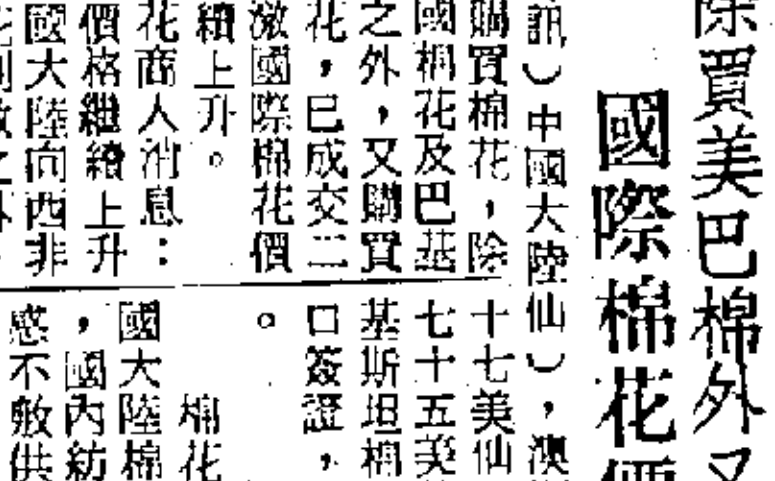 除買美巴棉外又
國際棉花價
訊）中國大陸
購買棉花，除
國棉花及巴基
之外，又購買
花，已成交二
激國際棉花價
續上升。
花商人消息：
價格繼續上升
國大陸向西非
仙），澳
十七美仙
七十五美
基斯坦棉
口簽證，
。
棉花
國大陸棉
，國內紡
感不敷供